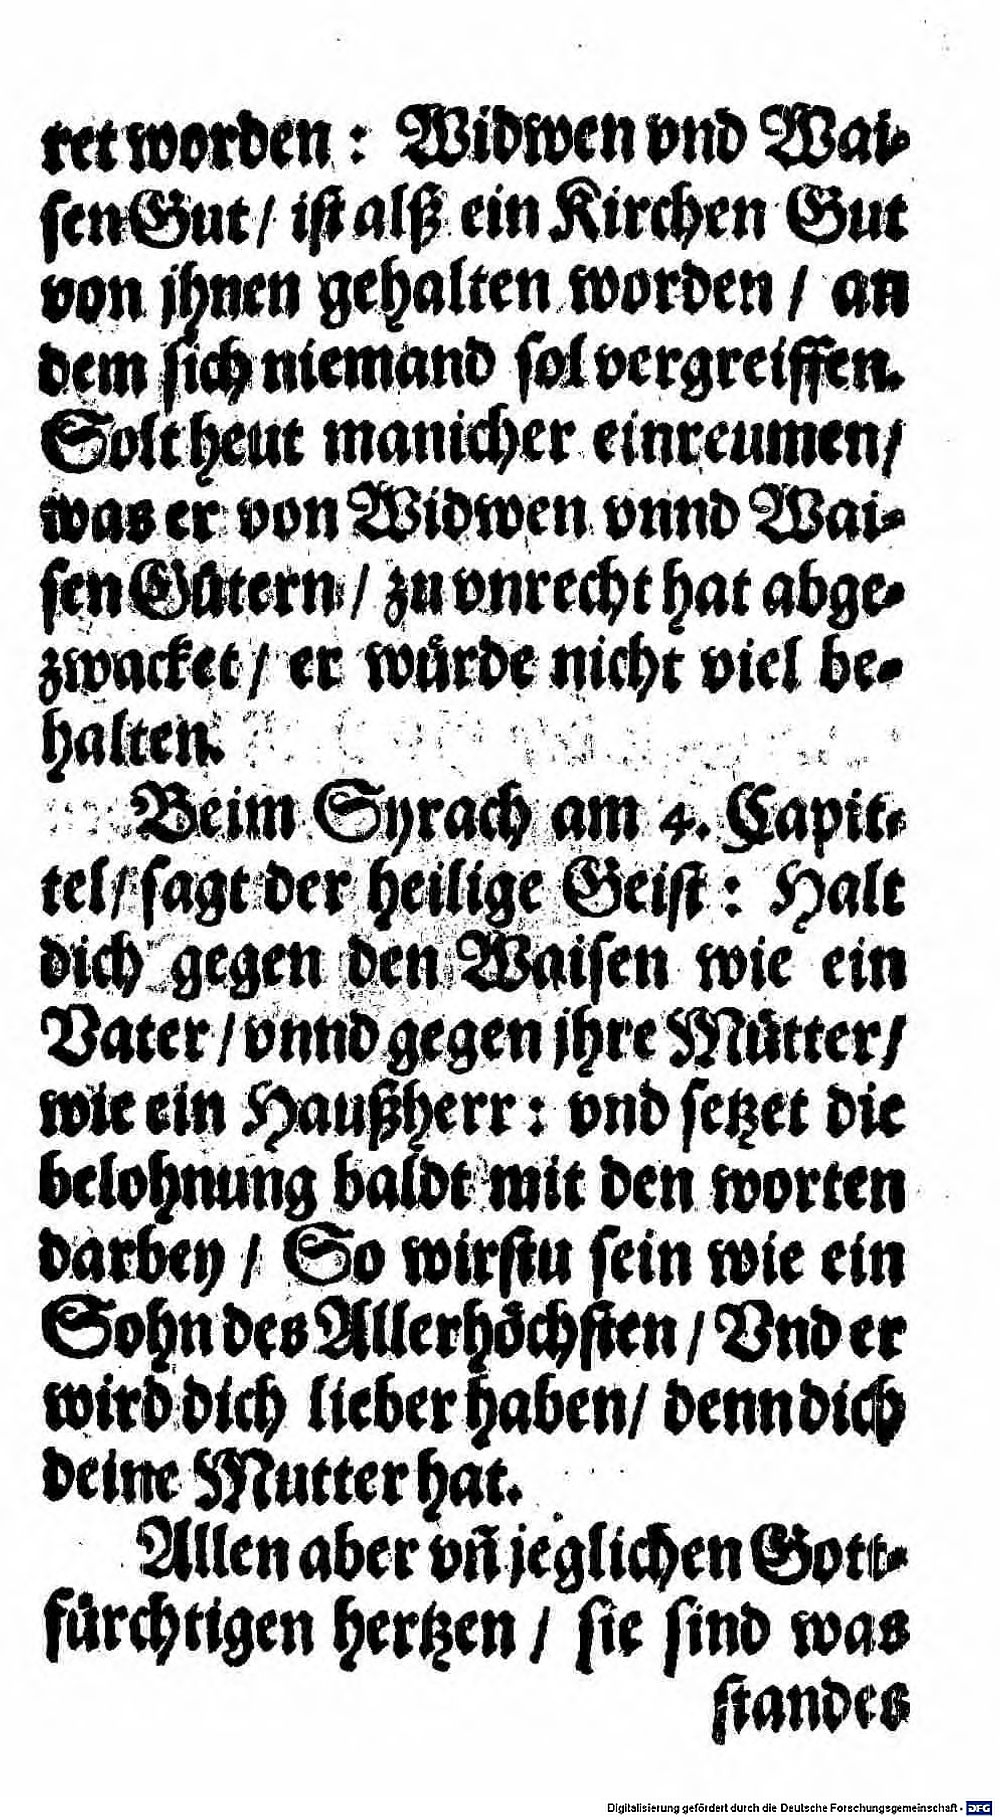 ret worden : Widwen vnd Wai⸗
ſen Gut / iſt alß ein Kirchen Gut
von jhnen gehalten worden / an
dem ſich niemand ſol vergreiffen.
Solt heut manicher einreumen /
was er von Widwen vnnd Wai⸗
ſen Guͤtern / zu vnrecht hat abge⸗
zwacket / er wuͤrde nicht viel be⸗
halten.
Beim Syrach am 4. Capit⸗
tel / ſagt der heilige Geiſt : Halt
dich gegen den Waiſen wie ein
Vater / vnnd gegen jhre Muͤtter /
wie ein Haußherr : vnd ſetzet die
belohnung baldt mit den worten
darbey / So wirſtu ſein wie ein
Sohn des Allerhoͤchſten / Vnd er
wird dich lieber haben / denn dich
deine Mutter hat.
Allen aber vñ jeglichen Gott⸗
fuͤrchtigen hertzen / ſie ſind was
ſtandes
Digitalisierung gefördert durch die Deutsche Forschungsgemeinschaft - DFG